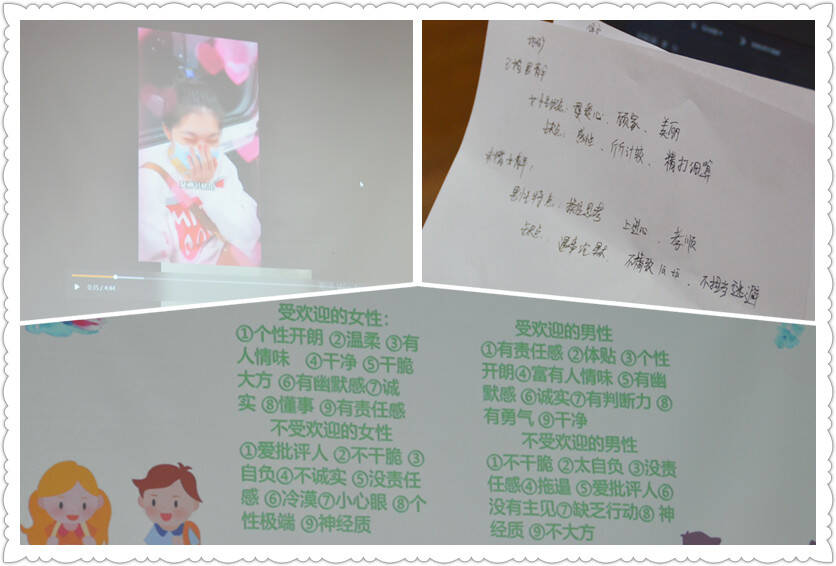 0:35 / 4:44
女
顾家、美丽
缺点：感性、斤斤计较、精打细算
男性特点：
上进心、孝顺
缺点：
受欢迎的女性：
①个性开朗 ②温柔 ③有
人情味 ④干净 ⑤干脆
大方 ⑥有幽默感⑦诚
实 ⑧懂事 ⑨有责任感
不受欢迎的女性
①爱批评人 ②不干脆 ③
自负④不诚实 ⑤没责任
感 ⑥冷漠⑦小心眼 ⑧个
性极端 ⑨神经质
受欢迎的男性
①有责任感 ②体贴 ③个性
开朗④富有人情味 ⑤有幽
默感 ⑥诚实⑦有判断力 ⑧
有勇气 ⑨干净
不受欢迎的男性
①不干脆 ②太自负 ③没责
任感④拖逼 ⑤爱批评人⑥
没有主见⑦缺乏行动⑧ 神
经质 ⑨不大方